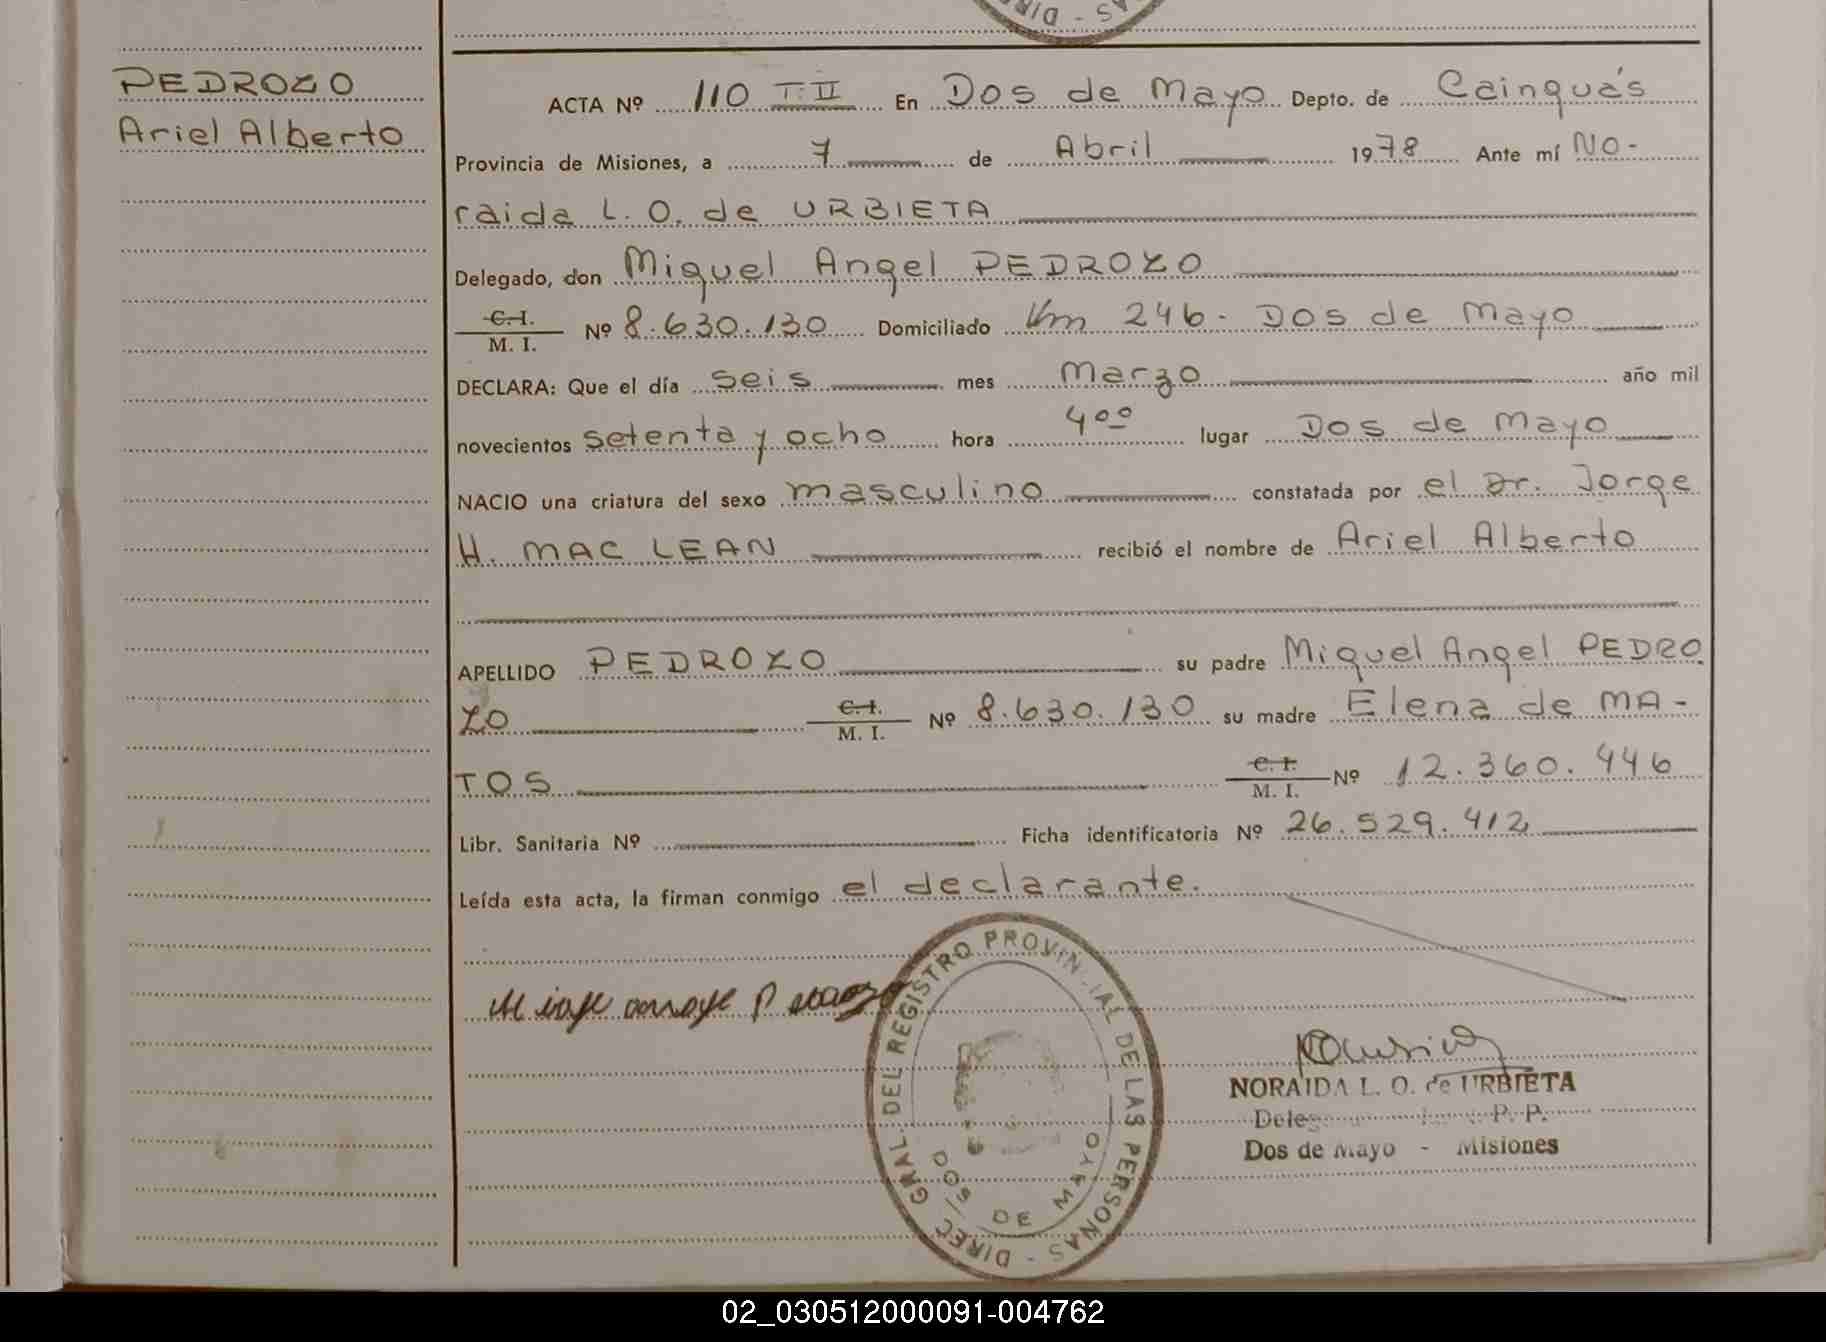 PEDROZO
Ariel Alberto
ACTA Nº 110 T:II En Dos de Mayo Depto. de Cainguás
Provincia de Misiones, a 7 de Abril 1978 Ante mí NO-
raida L. O. de URBIETA
Delegado, don Miguel Angel PEDROZO
C.I.
M. I. Nº 8.630.130 Domiciliado Km 246- Dos de Mayo
DECLARA: Que el día seis mes marzo año mil
novecientos setenta y ocho hora 4⁰⁰ lugar Dos de Mayo
NACIO una criatura del sexo masculino constatada por el Dr. Jorge
H. MAC LEAN recibió el nombre de Ariel Alberto
APELLIDO PEDROZO su padre Miguel Angel PEDRO
ZO C.I.
M. I. Nº 8.630.130 su madre Elena de MA-
TOS C. I.
M. I. Nº 12.360.446
Libr. Sanitaria Nº Ficha identificatoria Nº 26.529.412
Leída esta acta, la firman conmigo el declarante.
DIREC. GRAL. DEL REGISTRO PROVINCIAL DE LAS PERSONAS -
DOS DE MAYO
NORAIDA L. O. de URBIETA
P. P.
Dos de Mayo - Misiones
02_030512000091-004762